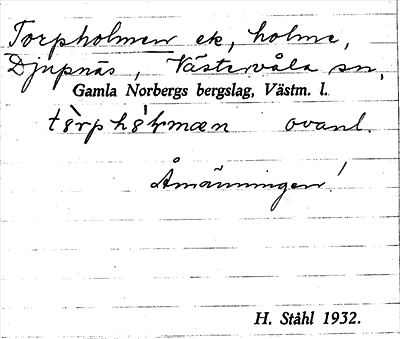 Torpholmen ek, holme,
Djupnäs, Västervåla sn,
Gamla Norbergs bergslag, Västm. l.
ovanl.
Åmänningen!
H. Ståhl 1932.